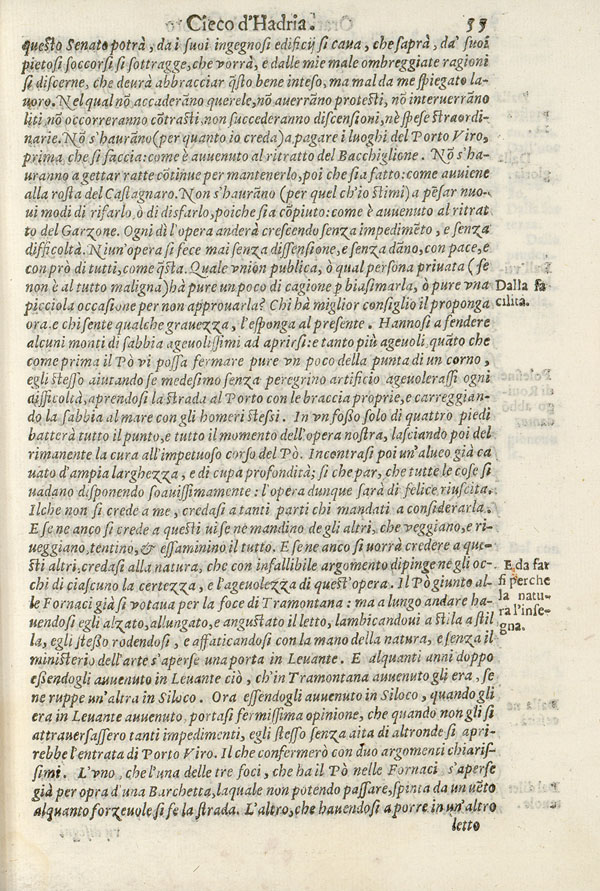 Cieco d'Hadria. 55
questo Senato potrà, da i suoi ingegnosi edificij si caua, che saprà, da' suoi
pietosi soccorsi si sottragge, che vorrà, e dalle mie male ombreggiate ragioni
si discerne, che deurà abbracciar q̃sto bene inteso, ma mal da me spiegato la-
uoro. Nel qual nõ accaderãno querele, nõ auerrãno protesti, nõ interuerrãno
liti, nõ occorreranno cõtrasti, non succederanno discensioni, nè spese straordi-
narie. Nõ s'haurãno (per quanto io creda) a pagare i luoghi del Porto Viro,
prima, che si faccia: come è auuenuto al ritratto del Bacchiglione. Nõ s'ha-
uranno a gettar ratte cõtinue per mantenerlo, poi che sia fatto: come auuiene
alla rosta del Castagnaro. Non s'haurãno (per quel ch'io stimi) a pẽsar nuo-
ui modi di rifarlo, ò di disfarlo, poiche sia cõpiuto: come è auuenuto al ritrat
to del Garzone. Ogni dì l'opera anderà crescendo senza impedimẽto, e senza
difficoltà. Niun'opera si fece mai senza dissensione, e senza dãno, con pace, e
con prò di tutti, come q̃sta. Quale vniõn publica, ò qual persõna priuata (se
non è al tutto maligna) hà pure un poco di cagione p biasimarla, ò pure vna
picciola occasione per non approuarla? Chi hà miglior consiglio il proponga
ora. e chi sente qualche grauezza, l'esponga al presente. Hannosi a fendere
alcuni monti di sabbia ageuolissimi ad aprirsi: e tanto più ageuoli, quãto che
come prima il Pò vi possa fermare pure vn poco della punta di un corno,
egli stesso aiutando se medesimo senza peregrino artificio ageuolerassi ogni
difficoltà, aprendosi la strada al Porto con le braccia proprie, e carreggian-
do la sabbia al mare con gli homeri stessi. In vn fosso solo di quattro piedi
batterà tutto il punto, e tutto il momento dell'opera nostra, lasciando poi del
rimanente la cura all'impetuoso corso del Pò. Incontrasi poi un'alueo già ca
uato d'ampia larghezza, e di cupa profondità; si che par, che tutte le cose si
uadano disponendo soauissimamente: l'opera dunque sarà di felice riuscita.
Ilche non si crede a me, credasi a tanti parti chi mandati a considerarla.
E se ne anco si crede a questi ui se ne mandino de gli altri, che veggiano, e ri-
ueggiano, tentino, & essaminino il tutto. E se ne anco si uorrà credere a que-
sti altri, credasi alla natura, che con infallibile argomento dipinge nè gli oc-
chi di ciascuno la certezza, e l'ageuolezza di quest'opera. Il Pò giunto al-
le Fornaci già si votaua per la foce di Tramontana: ma a lungo andare ha-
uendosi egli alzato, allungato, e angustato il letto, lambicandoui a stila a stil
la, egli stesso rodendosi, e affaticandosi con la mano della natura, e senza il
ministerio dell'arte s'aperse una porta in Leuante. E alquanti anni doppo
essendogli auuenuto in Leuante ciò, ch'in Tramontana auuenuto gli era, se
ne ruppe un'altra in Siloco. Ora essendogli auuenuto in Siloco, quando gli
era in Leuante auuenuto, portasi fermissima opinione, che quando non gli si
attrauersassero tanti impedimenti, egli stesso senza aita di altronde si apri-
rebbe l'entrata di Porto Viro. Il che confermerò con duo argomenti chiaris-
simi. L'vno, che l'una delle tre foci, che ha il Pò nelle Fornaci s'aperse
già per opra d'una Barchetta, laquale non potendo passare, spinta da un uẽto
alquanto forzeuole si fe la strada. L'altro, che hauendosi a porre in un'altro
letto
Dalla fa
cilita.
E da far
si perche
la natu-
ra l'inse-
gna.